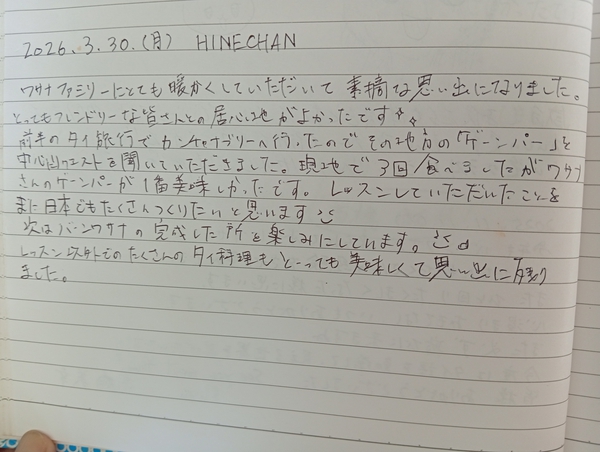 2026.3.30.(月) HINECHAN
ワサナファミリーにとても暖かくしていただいて素摘な思い出になりました。
とってもフレンドリーな皆さんとの居心地がよかったです
前半のタイ旅行でカンチャナブリーへ行ったのでその地方の「ゲーンパー」を
中心にリクエストを聞いていただきました。現地で3回食べましたがワサナ
さんのゲーンパーが1番美味しかったです。レッスンしていただいたことを
また日本でもたくさんつくりたいと思います
次はバーンワサナの完成した所を楽しみにしています。
レッスン以外でのたくさんのタイ料理もとーっても美味しくて思い出に残り
ました。